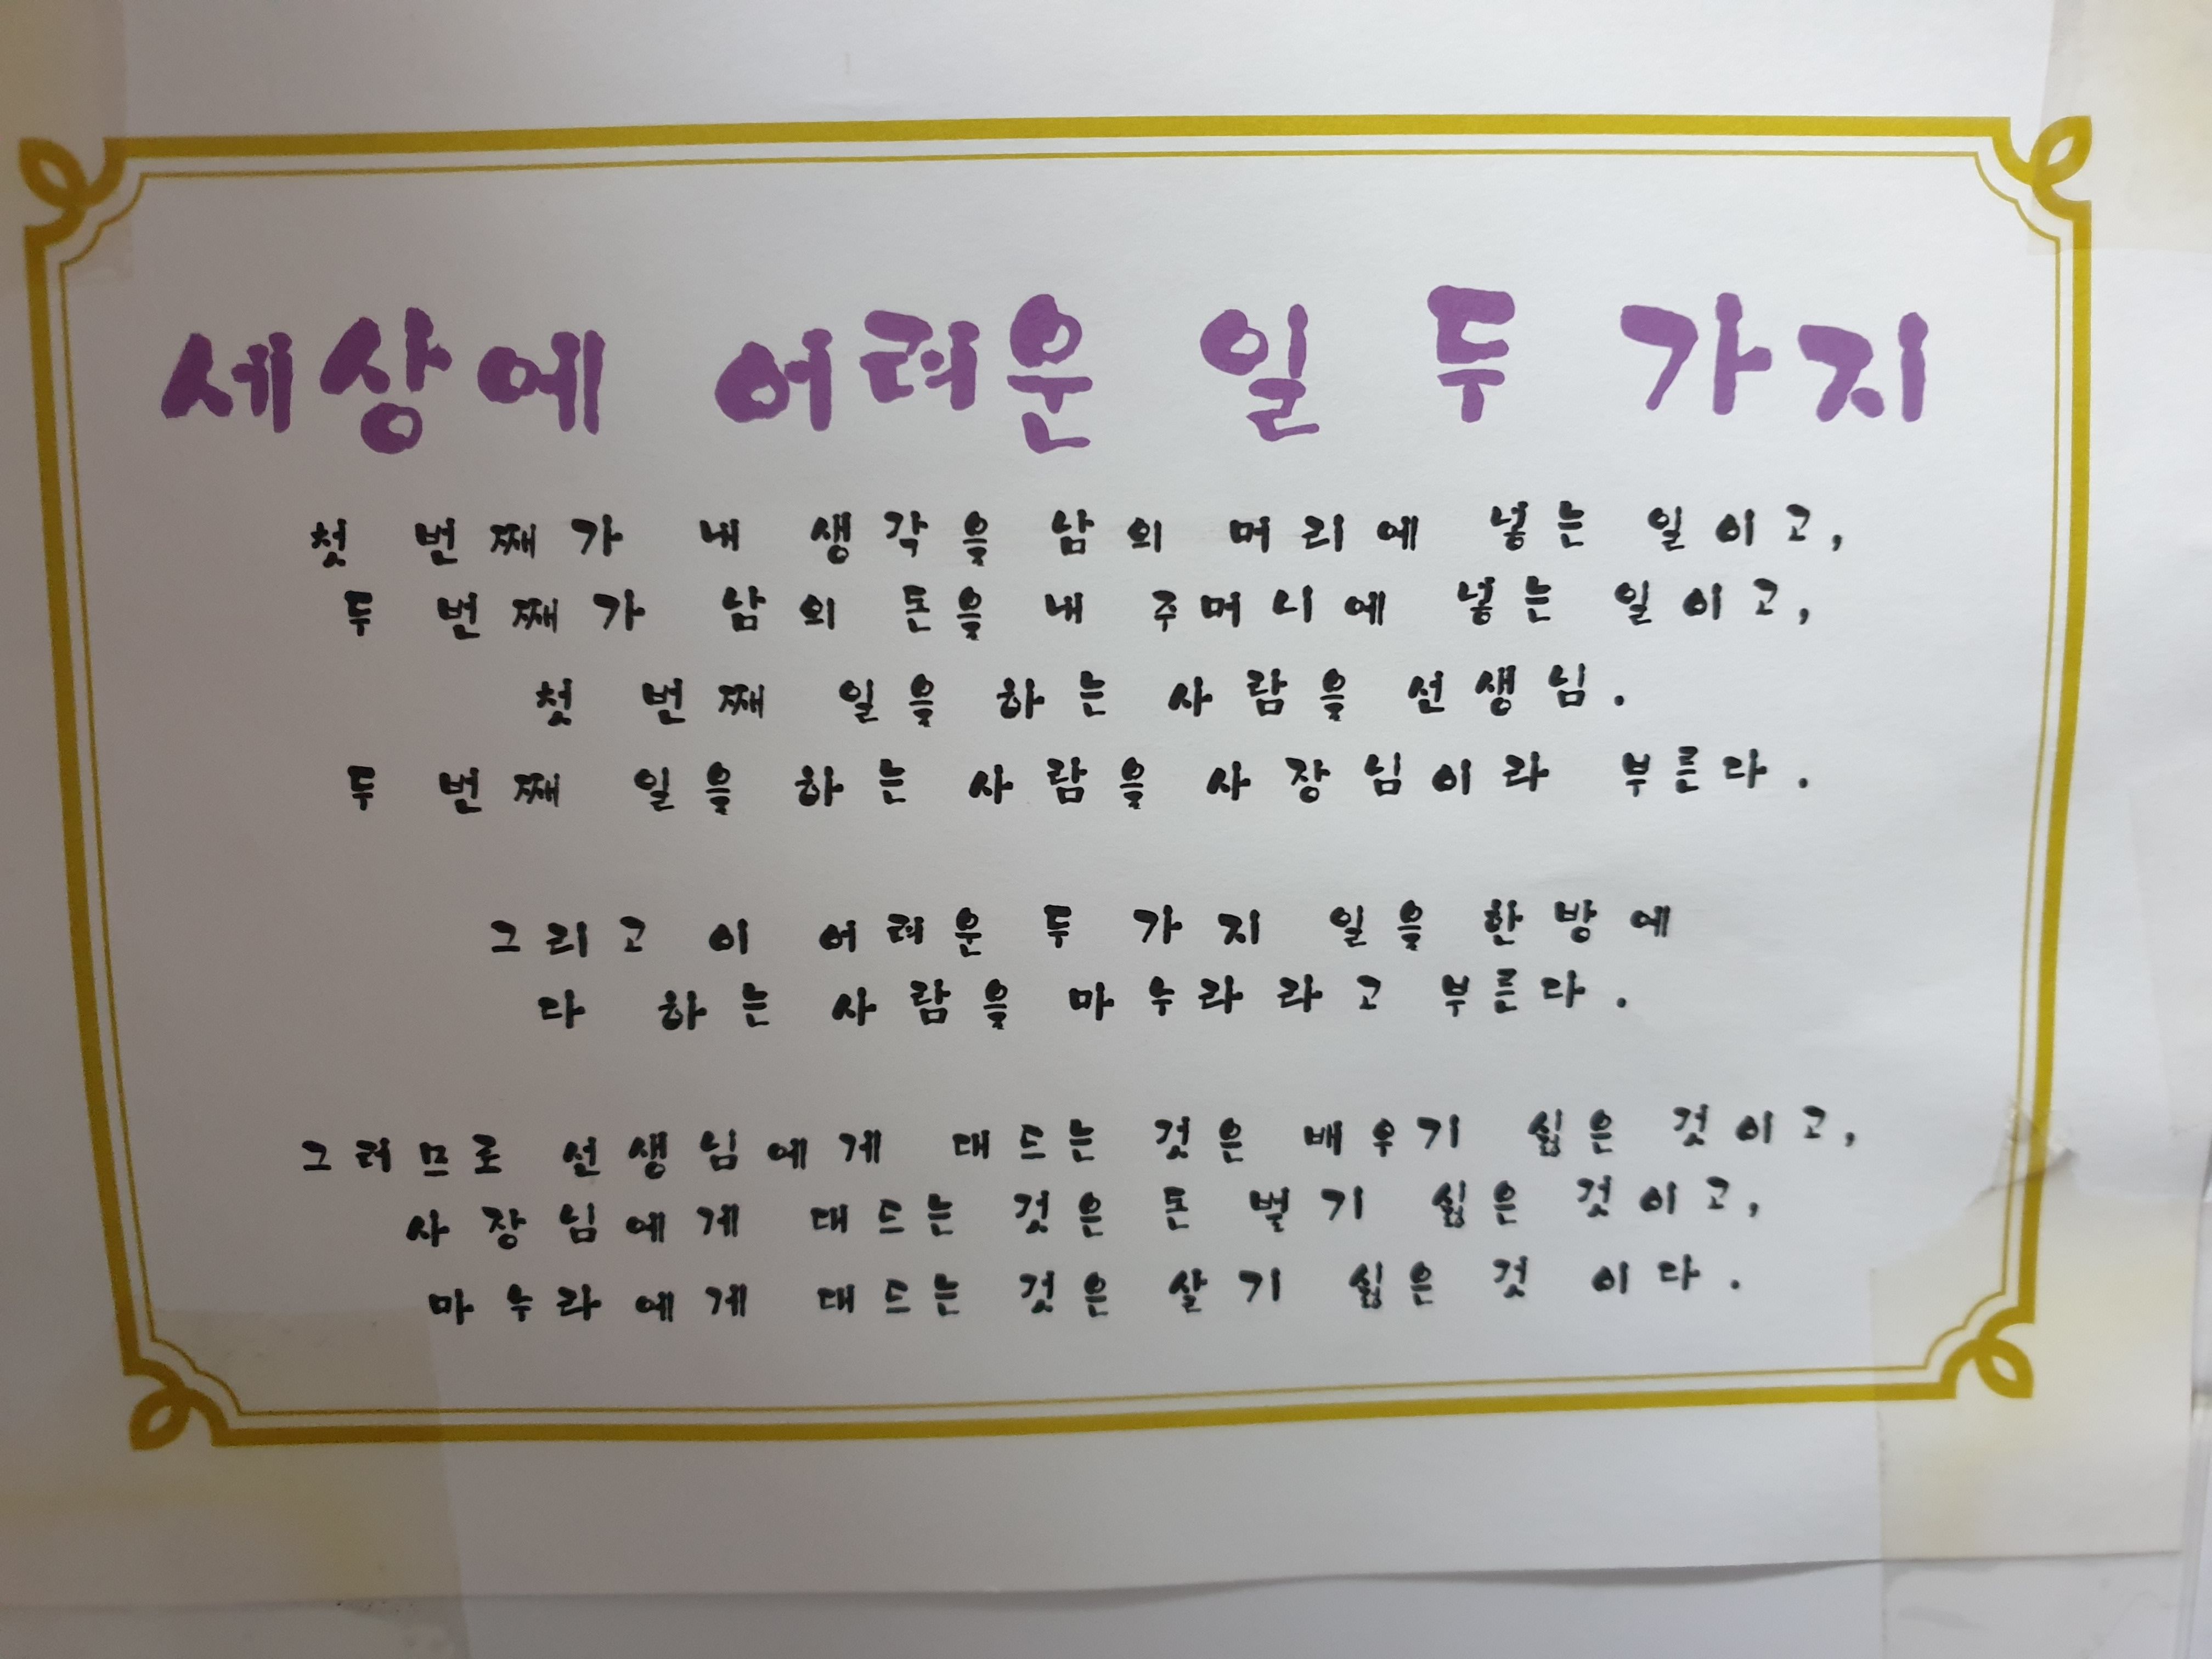 세상에 어려운 일 두 가지
첫 번째가 내 생각을 남의 머리에 넣는 일이고,
두 번째가 남의 돈을 내 주머니에 넣는 일이고,
첫 번째 일을 하는 사람을 선생님.
두 번째 일을 하는 사람을 사장님이라 부른다.
그리고 이 어려운 두 가지 일을 한방에
다 하는 사람을 마누라라고 부른다.
그러므로 선생님에게 대드는 것은 배우기 싫은 것이고,
사장님에게 대드는 것은 돈 벌기 싫은 것이고,
마누라에게 대드는 것은 살기 싫은 것 이다.